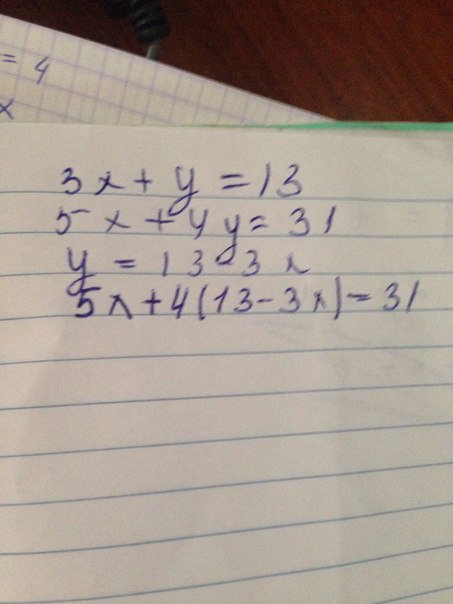 = 4
x
3x + y = 13
5x + 4y = 31
y = 13 - 3x
5x + 4(13 - 3x) = 31